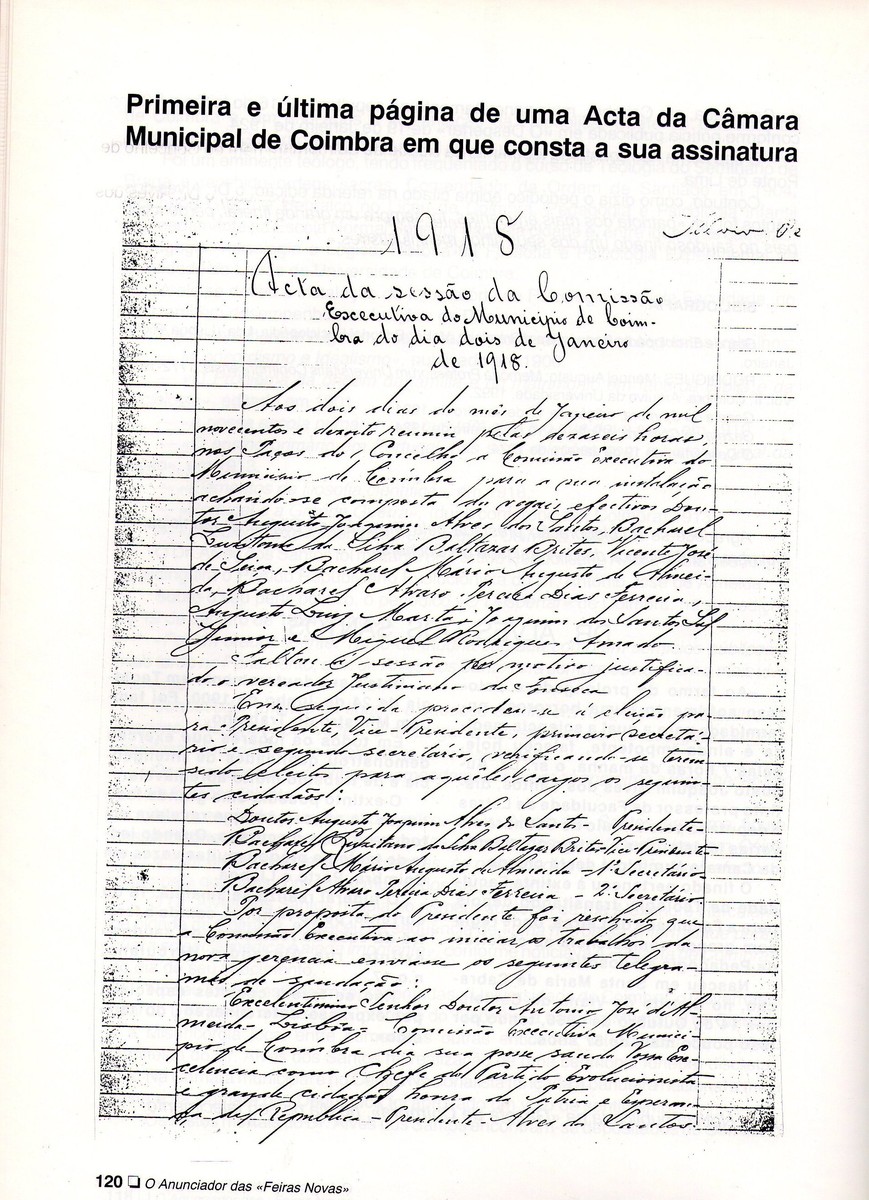 Primeira e última página de uma Acta da Câmara
Municipal de Coimbra em que consta a sua assinatura
1918
Acta da sessão da Comissão
Excecutiva do Municipio de Coim-
bra do dia dois de Janeiro
de 1918.
Aos dois dias do mês de Janeiro de mil
novecentos e dezoito reuniu pelas dezaseis horas,
nos Paços do Concelho a Comissão Executiva do
Municipio de Coimbra para a sua instalação
achando-se composta dos vogais efectivos Dou-
tor Augusto Joaquim Alves dos Santos, Bacharel
da Silva Baltazar Brites, Vicente José
de Seiça, Bacharel Mário Augusto de Almei-
da, Bacharel Alvaro Pereira Dias Ferreira,
Augusto Luiz Marta, Joaquim dos Santos
Junior e Miguel Rodrigues Amado.
Faltou á sessão por motivo justifica-
do o vereador Justiniano da Fonseca
Em seguida procedeu-se á eleição pa-
ra Presidente, Vice-Presidente, primeiro secretá-
rio e segundo secretário, verificando-se terem
sido eleitos para aquêles cargos os seguin-
tes cidadãos:
Doutor Augusto Joaquim Alves dos Santos - Presidente-
Bacharel da Silva Baltazar Brites Vice-Presidente-
Bacharel Mário Augusto de Almeida - 1º Secretário-
Bacharel Alvaro Pereira Dias Ferreira - 2º Secretário.
Por proposta do Presidente foi resolvido que
a Comissão Executiva ao iniciar os trabalhos da
nova gerencia enviasse os seguintes telegra-
mas de saudação:
Excelentissimo Senhor Doutor Antonio José d'Al-
meida - Lisbôa - Comissão Executiva Munici-
pio de Coimbra dia sua posse sauda Vossa Ex-
celencia como Chefe do Partido Evolucionista
e grande cidadão honra da Patria e Esperan-
ça da Republica - Presidente - Alves dos Santos.
120 ❑ O Anunciador das «Feiras Novas»